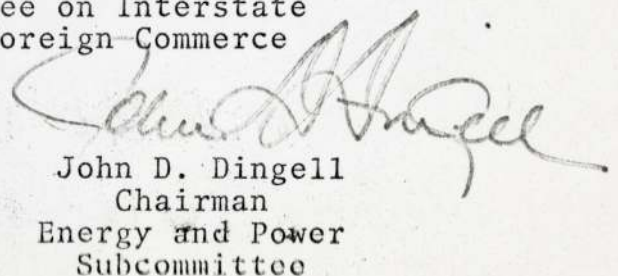 ee on Interstate
oreign Commerce
John D. Dingell
John D. Dingell
Chairman
Energy and Power
Subcommittee